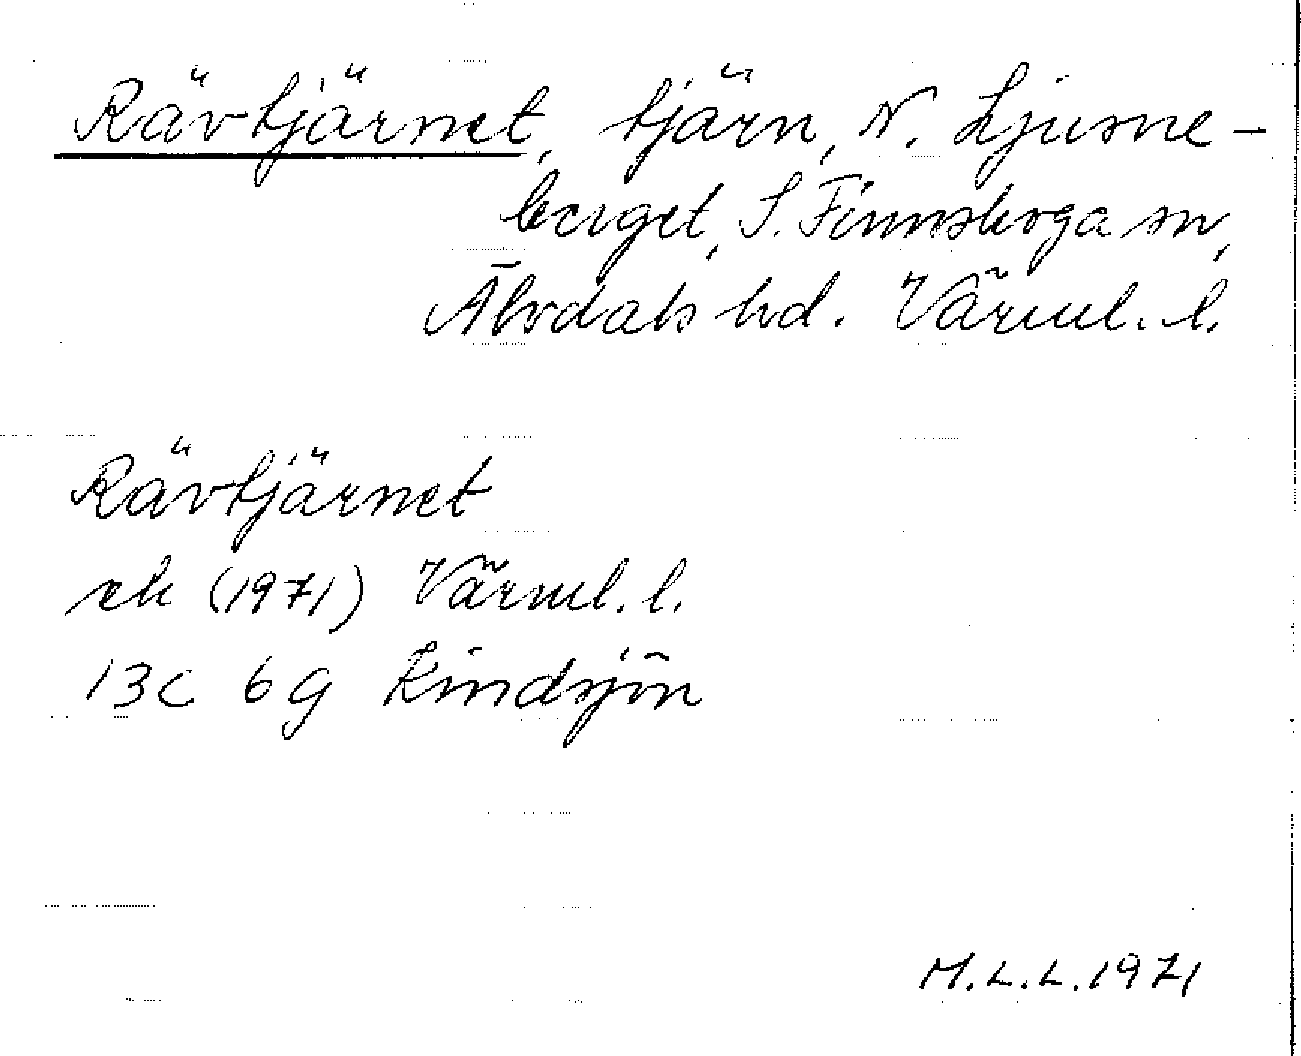 Rävtjärnet, tjärn, N. Ljusne-
berget, S. Finnskoga sn,
Älvdals hd. Värml. l.
Rävtjärnet
ek (1971) Värml. l.
13c 6g Kindsjön
M.L.L.1971